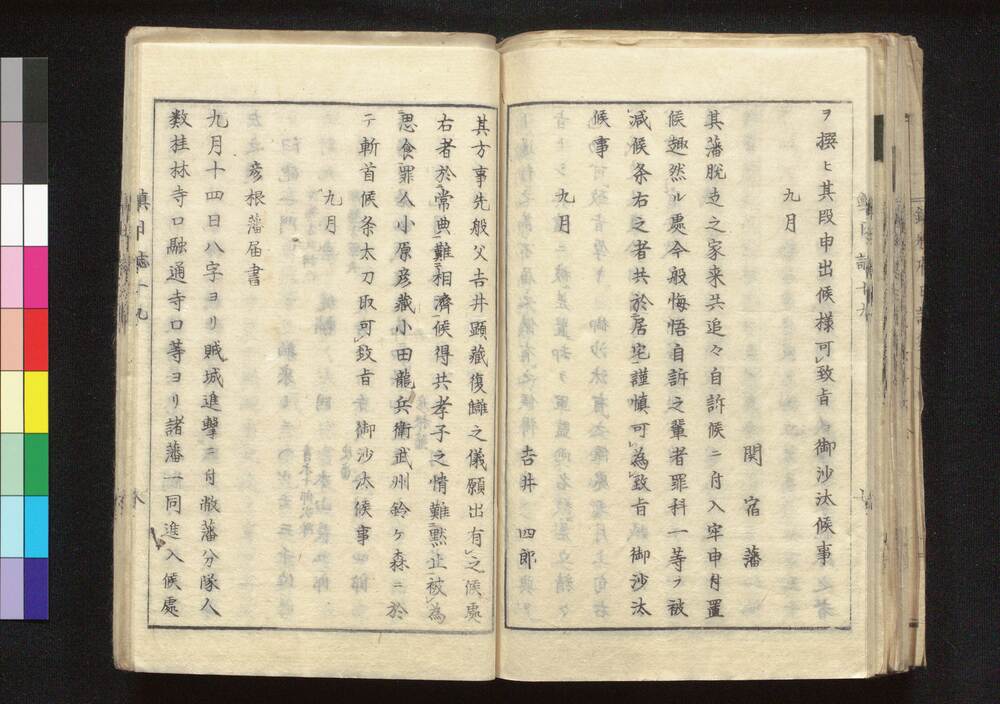 ヲ撰ヒ其段申出候様可致旨御沙汰候事
九月
関宿藩
其藩脱走之家来共追々自訴候ニ付入牢申付置
候趣然ル處今般悔悟自訴之輩者罪科一等ヲ被
減候条右之者共於居宅謹慎可為致旨御沙汰
候事
九月
吉井四郎
其方事先般父吉井顕藏復讎之儀願出有之候處
右者於常典難相濟候得共孝子之情難黙止被為
思食罪人小原彦藏小田龍兵衛武州鈴ヶ森ニ於
テ斬首候条太刀取可致旨御沙汰候事
九月
彦根藩届書
九月十四日八字ヨリ賊城進撃ニ付敝藩分隊人
数桂林寺口融通寺口等ヨリ諸藩一同進入候處